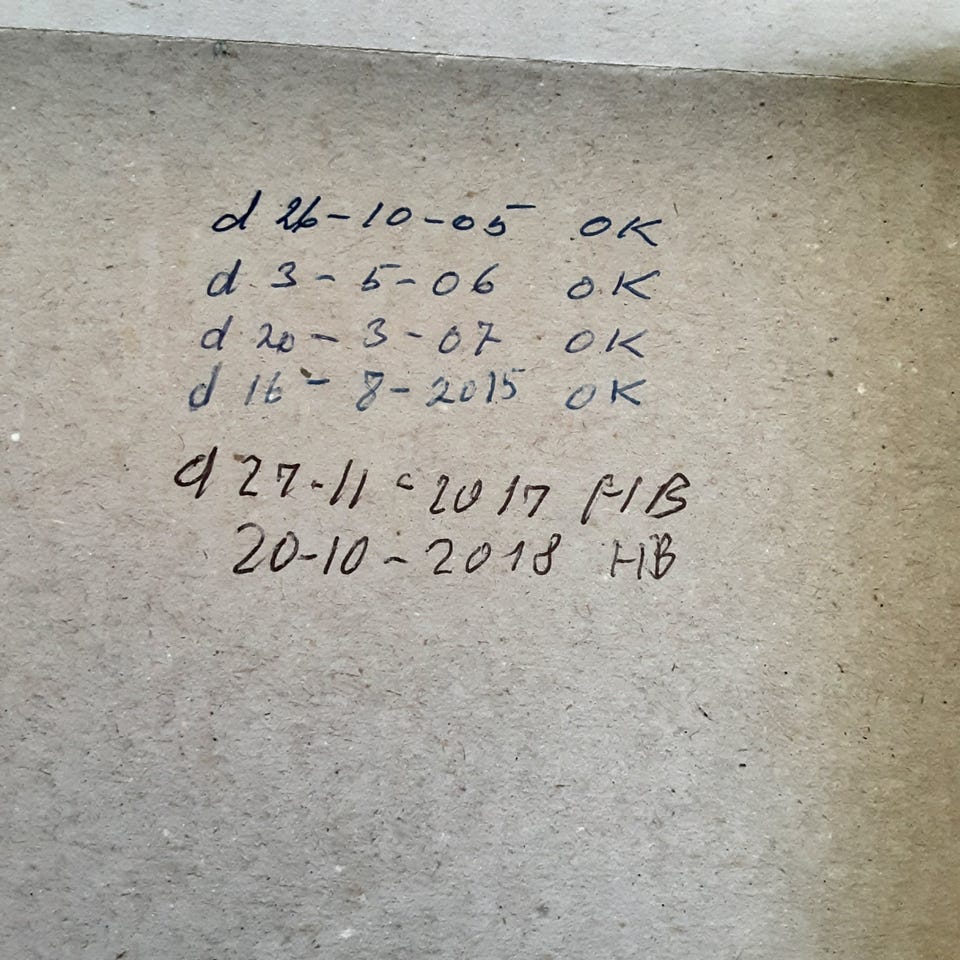 d 26-10-05 OK
d 3-5-06 OK
d 20-3-07 OK
d 16-8-2015 OK
d 27-11-2017 HB
20-10-2018 HB